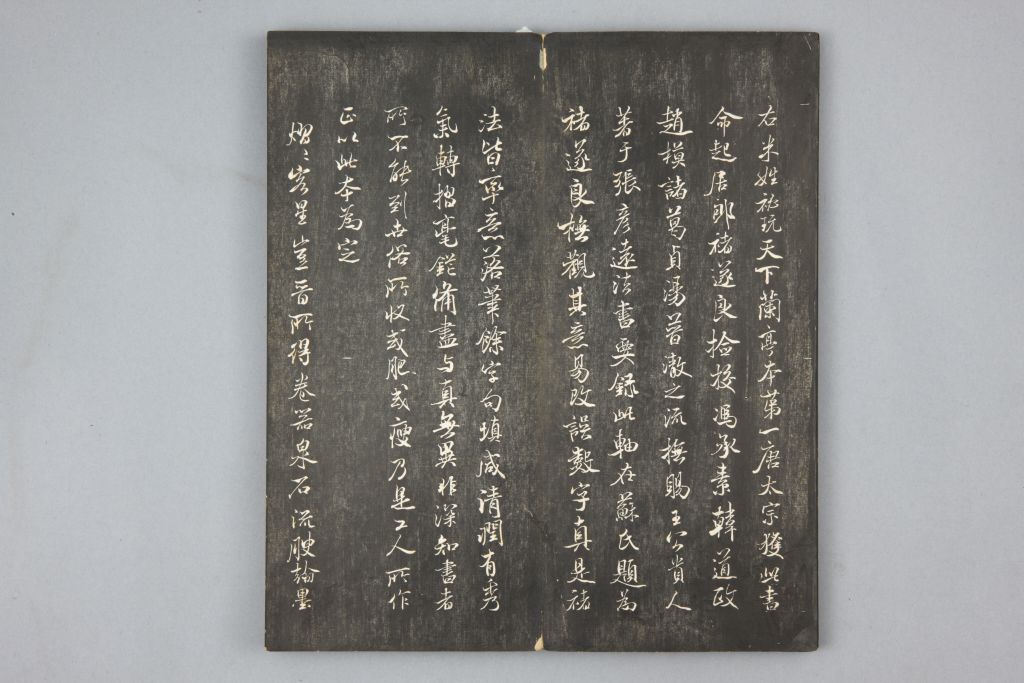 右米姓祕玩天下蘭亭本第一唐太宗獲此書
命起居郎褚遂良捡挍馮承素韓道政
趙模諸葛貞湯普澈之流橅賜王公貴人
著于張彥遠法書要録此軸在蘇氏題為
褚遂良橅觀其意易改誤數字真是褚
法皆率意落筆餘字句填咸清潤有秀
氣轉摺毫鋩備盡与真無異非深知書者
所不能到世俗所收或肥或瘦乃是工人所作
正以此本為定
熠〻客星豈晉所得卷器泉石流腴翰墨